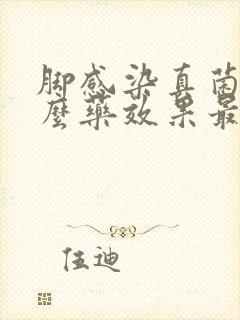 脚感染真菌
麼藥效果最
伍迪